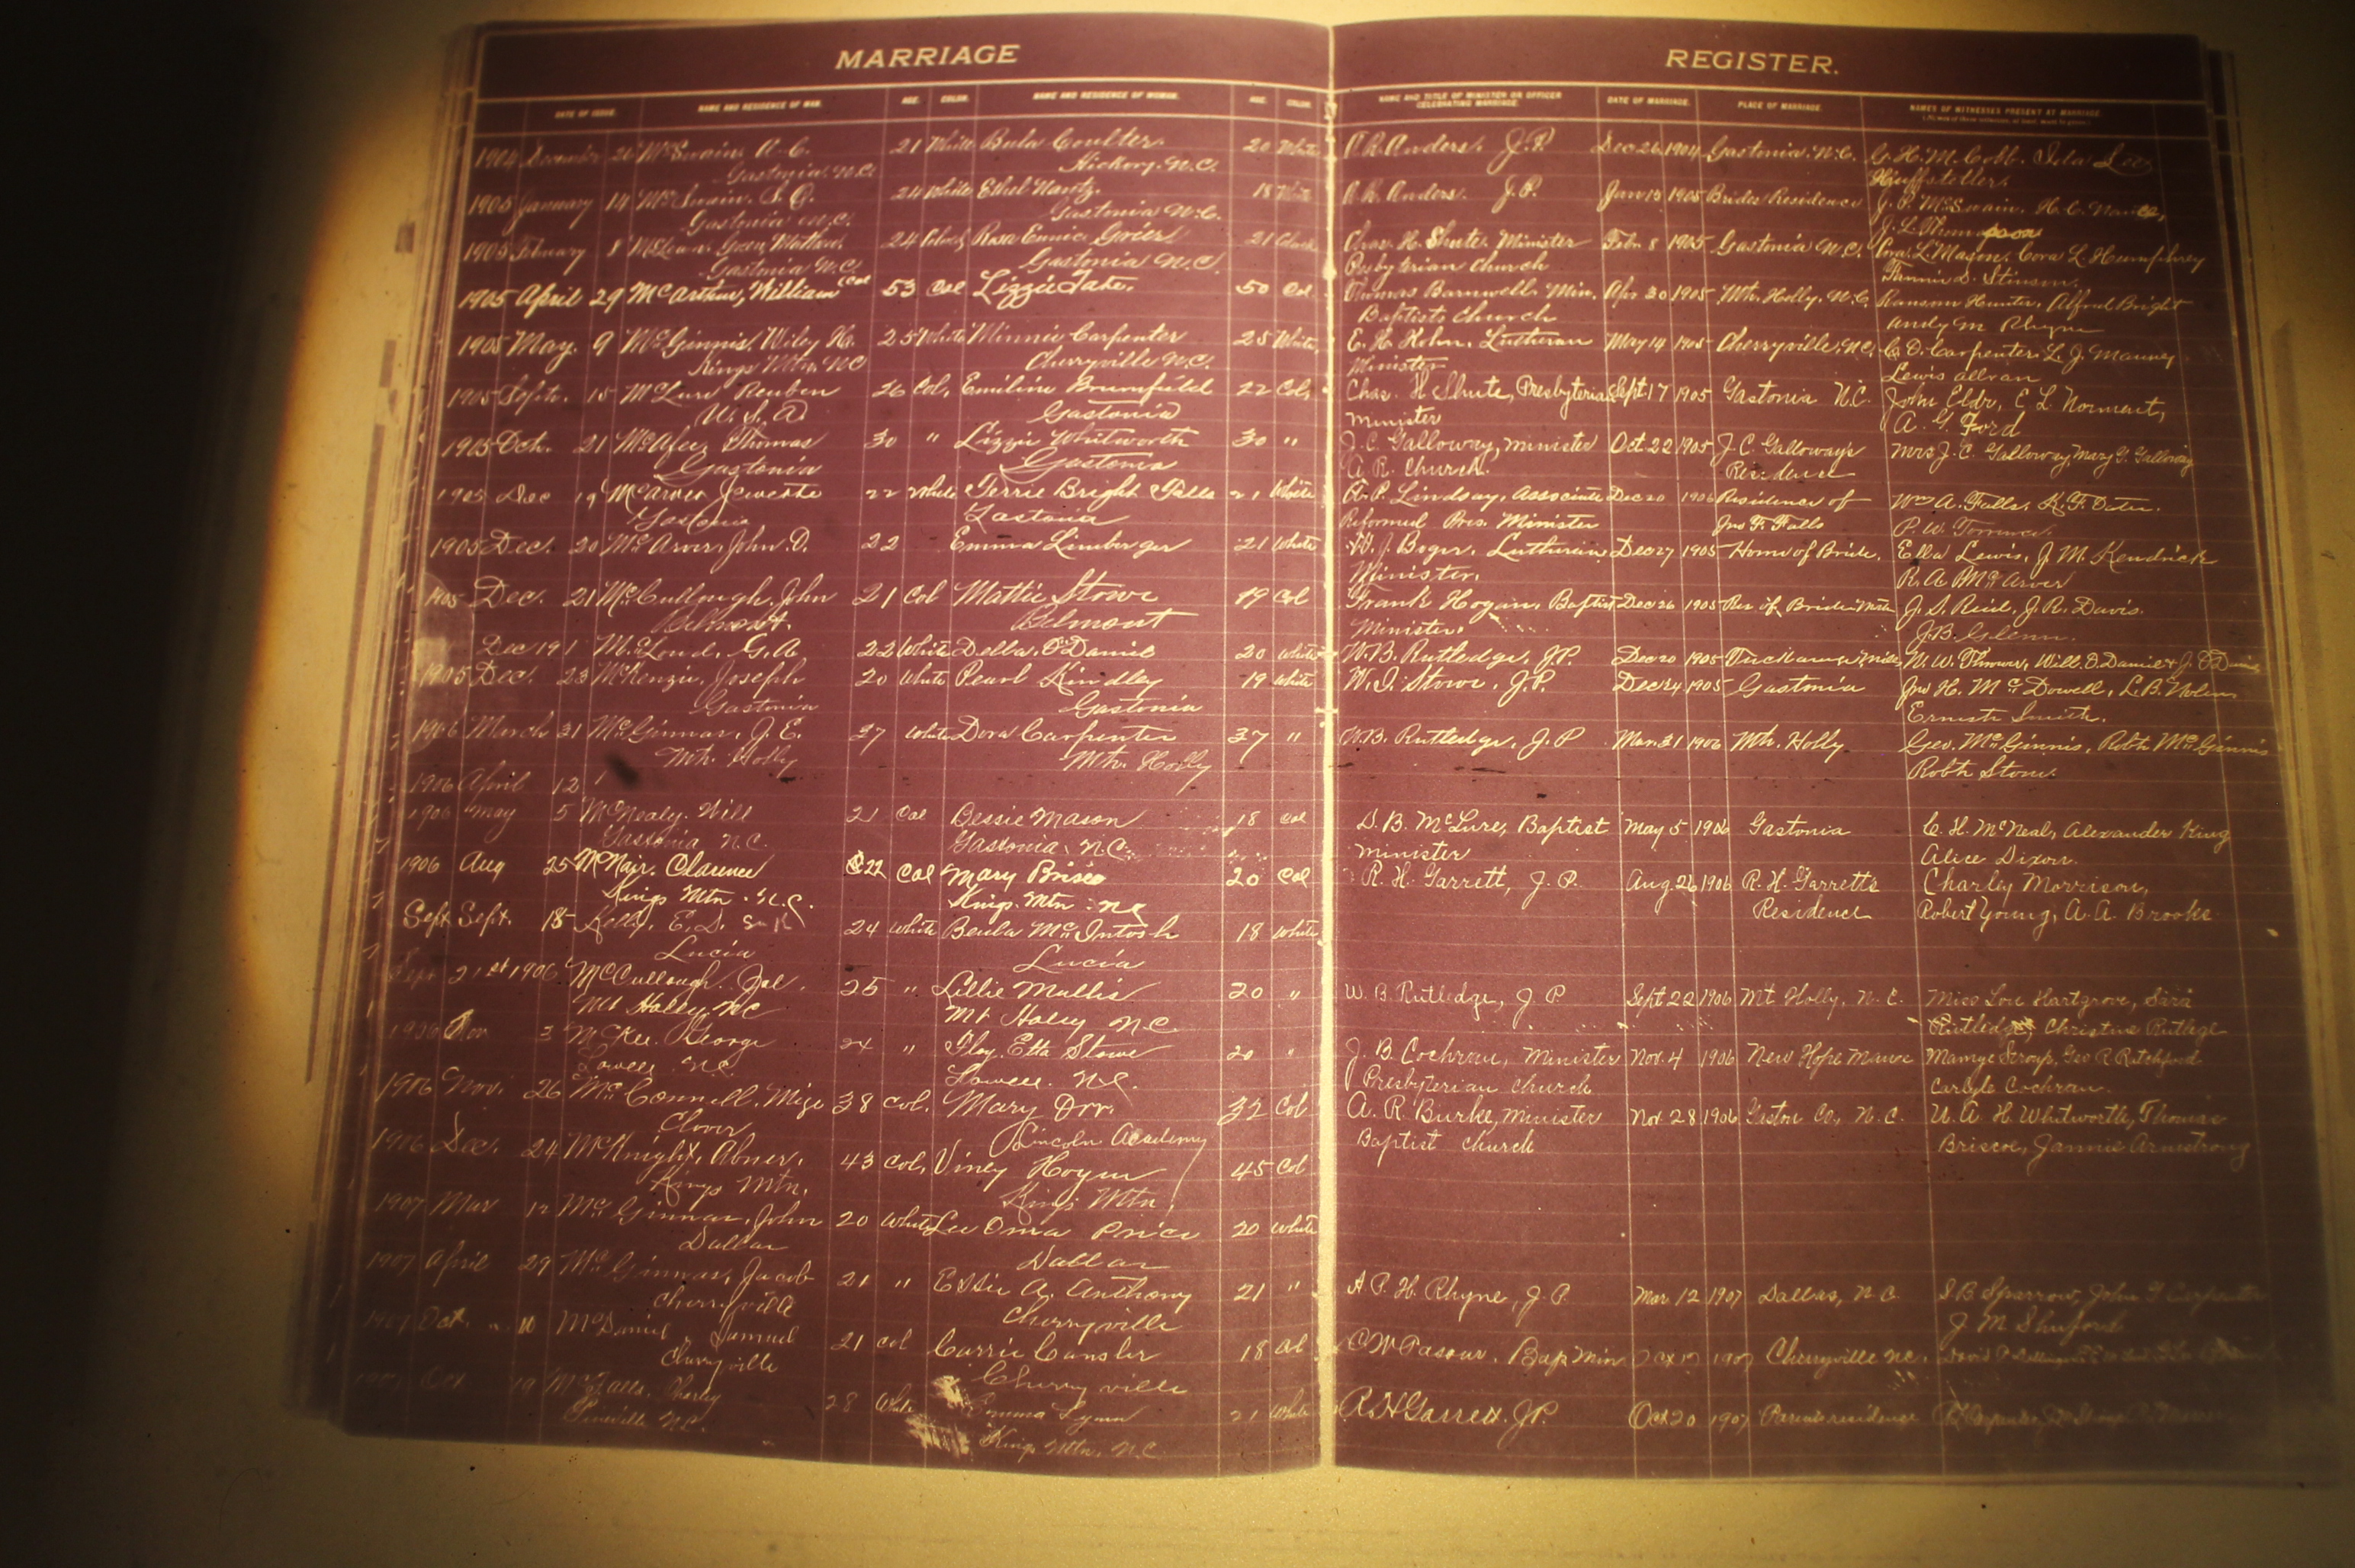 MARRIAGE REGISTER.
DATE OF ISSUE. NAME AND RESIDENCE OF MAN. AGE. COLOR. NAME AND RESIDENCE OF WOMAN. AGE. COLOR. NAME AND TITLE OF MINISTER OR OFFICER CELEBRATING MARRIAGE. DATE OF MARRIAGE. PLACE OF MARRIAGE. NAMES OF WITNESSES PRESENT AT MARRIAGE
1904 December 26 McSwain A. C. 21 White Bula Coulter. 20 White A. R. Anders. J. P. Dec 26 1904 Gastonia. N. C. G. H. M. Cobb. Ida Lee
Gastonia. N.C. Hickory. N.C. Huffstetler.
1905 January 14 McSwain. S. O. 24 White Ethel Nantz. 18 White A. R. Anders. J. P. Jan 15 1905 Brides Residence J. P. McSwain. H. C. Nantz,
Gastonia N.C. Gastonia N.C. J. L. Thompson
1905 February 8 24 Grier. 21 Chas. H. Shute. Minister Feb. 8 1905 Gastonia N.C. Cora L. Mason. Cora L. Humphrey
Gastonia N.C. Gastonia N.C. Presbyterian Church Fannie D. Stinson.
1905 April 29 McArthur, William Col 53 Col Lizzie Tate. 50 Col. Thomas Barnwell. Min. Apr 30 1905 Mt. Holly, N.C. Ransom Hunter, Alfred Bright
Baptist Church Andy M Rhyne
1905 May. 9 McGinnis, Wiley H. 25 White Minnie Carpenter 25 White, E. H. Kohn. Lutheran May 14 1905 Cherryville, N.C. C. D. Carpenter. L. J. Mauney
Kings Mtn. N.C Cherryville N.C. Minister Lewis Allran
1905 Sept. 15 McLurd Reuben 26 Col, Emiline Brumfield 22 Col, Chas. H Shute, Presbyterian Sept 17 1905 Gastonia N.C. John Eldr, C L. Norment,
U. S. A Gastonia Minister A. G. Ford
1905 Oct. 21 McAfee, Thomas 30 " Lizzie Whitworth 30 " J. C. Galloway, Minister Oct 22 1905 J. C. Galloway's Mrs J. C. Galloway, Mary G. Galloway
Gastonia Gastonia A. R. Church. Residence
1905 Dec 19 McArver 22 White Bright Falls 21 White R. P. Lindsay, Associate Dec 20 1906 Residence of Wm A. Falls.
Gastonia Gastonia Reformed Pres. Minister Jno F. Falls P. W. Torrence.
1905 Dec. 20 McArver, John O. 22 Emma Linebarger 21 White W. J. Boger. Lutheran Dec 27 1905 Home of Bride. Ella Lewis, J. M. Kendrick
Minister. R. A. McArver
1905 Dec. 21 McCullough. John 21 Col Mattie Stowe 19 Col Frank Hogan, Baptist Dec 26 1905 Res of Bride J. S. Reid, J. R. Davis.
Belmont. Belmont Minister. J. B. Glenn.
Dec 19 G. A 22 White Della O'Daniel 20 White W. B. Rutledge, J. P. Dec 20 1905 W. W. Thrower, Will O'Daniel
1905 Dec. 23 McKenzie, Joseph 20 White Pearl Kindley 19 White W. I. Stowe, J. P. Dec 24 1905 Gastonia Jno H. McDowell, L. B. Nolen
Gastonia Gastonia Ernest Smith.
1906 March 31 McGinnas, J. E. 37 White Dora Carpenter 37 " W. B. Rutledge, J. P Mar. 31 1906 Mt. Holly Geo. McGinnis, Robt McGinnis
Mt. Holly Mt. Holly Robt Stowe.
1906 April 12
1906 May 5 McNealy. Will 21 Col Bessie Mason 18 Col D. B. McLure, Baptist May 5 1906 Gastonia C. H. McNeal, Alexander King
Gastonia N.C. Gastonia, N.C. Minister Alice Dixon.
1906 Aug 25 McNair. Clarence 22 Col Mary Brisco 20 Col R. H. Garrett, J. P. Aug 26 1906 R. H. Garretts Charley Morrison,
Kings Mtn. N.C. Kings. Mtn. NC Residence Robert Young, A. A. Brooks
Sept Sept. 15 Kelly, E. D. 24 White Beula McIntosh 18 White
Lucia Lucia
Sept 21st 1906 McCullough. 25 " Lillie Mullis 20 " W. B. Rutledge, J. P. Sept 22 1906 Mt Holly, N. C. Miss Lou Hartgrove, Sara
Mt Holly, NC Mt Holly NC Rutledge, Christine Rutlege
1906 Nov 3 McKee. George 24 " Etta Stowe 20 " J. B. Cochran, Minister Nov. 4 1906 New Hope Manse Mamye Stroup, Geo R Ratchford
Lowell N.C. Lowell. N.C. Presbyterian Church Carlyle Cochran.
1906 Nov. 26 McConnell, 38 Col. Mary Orr. 32 Col A. R. Burke, Minister Nov. 28 1906 Gaston Co, N. C. U. A. H. Whitworth, Thomas
Clover Lincoln Academy Baptist Church Briscoe, Jannie Armstrong
1906 Dec. 24 McKnight, Abner. 43 Col, Viney 45 Col
Kings Mtn. Kings Mtn.
1907 Mar 12 McGinnas, John 20 White Lee Oma Price 20 White
Dallas Dallas
1907 April 29 McGinnas, Jacob 21 " Essie A. Anthony 21 " A P. H. Rhyne, J. P. Mar. 12 1907 Dallas, N. C. S B Sparrow, John F Carpenter
Cherryville Cherryville J M Shuford
1907 Oct. 10 McDaniel, Samuel 21 Col Carrie Cansler 18 Col C W Pasour. Bap Min Oct 1907 Cherryville N.C.
Cherryville Cherryville
Oct 19 28 White Emma Lynn 21 White R. H Garrett. J P. Oct 20 1907 Parents residence
Pineville N.C. Kings Mtn, N.C